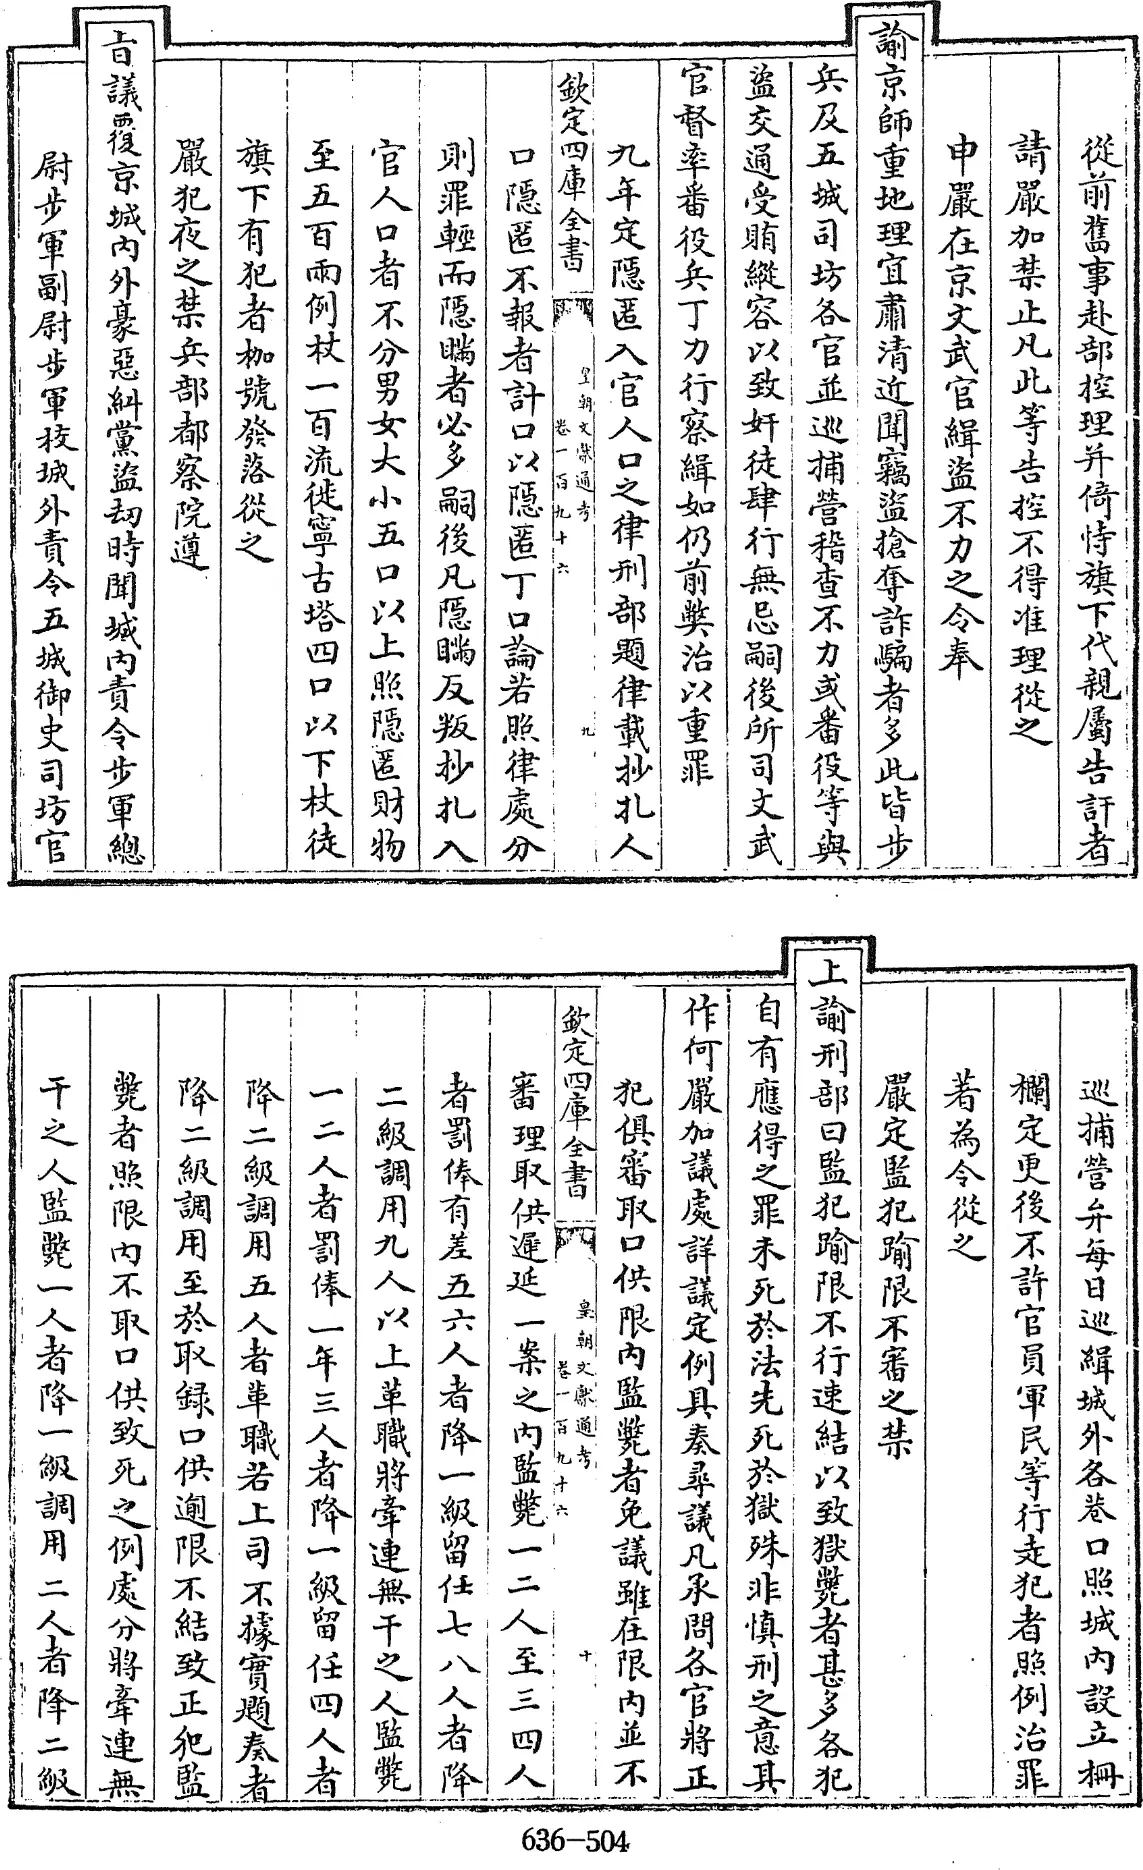 從前舊事赴部控理并倚恃旗下代親屬告訐者
請嚴加禁止凡此等告控不得准理從之
申嚴在京文武官緝盜不力之令奉
諭京師重地理宜肅清近聞竊盜搶奪詐騙者多此皆步
兵及五城司坊各官並巡捕營稽查不力或番役等與
盜交通受賄縱容以致奸徒肆行無忌嗣後所司文武
官督率番役兵丁力行察緝如仍前獘治以重罪
九年定隱匿入官人口之律刑部題律載抄扎人
欽定四庫全書
皇朝文獻通考
卷一百九十六
九
口隱匿不報者計口以隱匿丁口論若照律處分
則罪輕而隱瞞者必多嗣後凡隱瞞反叛抄扎入
官人口者不分男女大小五口以上照隱匿財物
至五百兩例杖一百流徙寧古塔四口以下杖徒
旗下有犯者枷號發落從之
嚴犯夜之禁兵部都察院遵
旨議覆京城內外豪惡糾黨盜刼時聞城內責令步軍總
尉步軍副尉步軍校城外責令五城御史司坊官
巡捕營弁每日巡緝城外各巷口照城內設立柵
欄定更後不許官員軍民等行走犯者照例治罪
著為令從之
嚴定監犯踰限不審之禁
上諭刑部曰監犯踰限不行速結以致獄斃者甚多各犯
自有應得之罪未死於法先死於獄殊非慎刑之意其
作何嚴加議處詳議定例具奏尋議凡承問各官將正
犯俱審取口供限內監斃者免議雖在限內並不
欽定四庫全書
皇朝文獻通考
卷一百九十六
十
審理取供遲延一案之內監斃一二人至三四人
者罰俸有差五六人者降一級留任七八人者降
二級調用九人以上革職將牽連無干之人監斃
一二人者罰俸一年三人者降一級留任四人者
降二級調用五人者革職若上司不據實題奏者
降二級調用至於取錄口供逾限不結致正犯監
斃者照限內不取口供致死之例處分將牽連無
干之人監斃一人者降一級調用二人者降二級
636-504